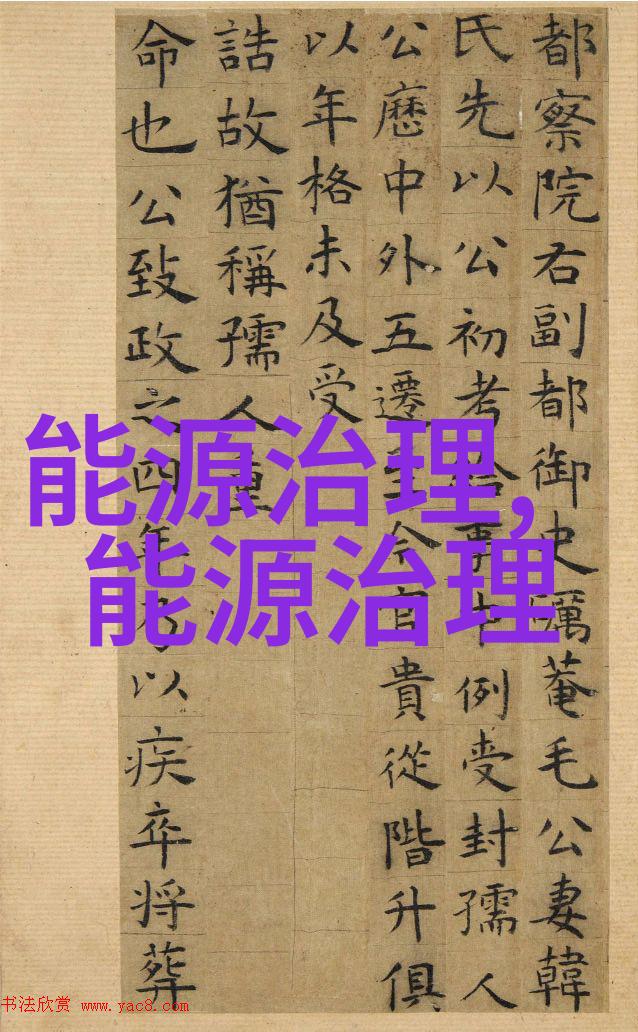 都察院右副都御史礪菴毛公妻韓
氏先以公初考給事中例受封孺人
公歷中外五遷至今官貴從階升俱
以年格未及受
誥故猶稱孺人重
命也公致政之四年乃以疾卒将葬
能源治理,
能源治理
书法欣赏 www.yac8.com